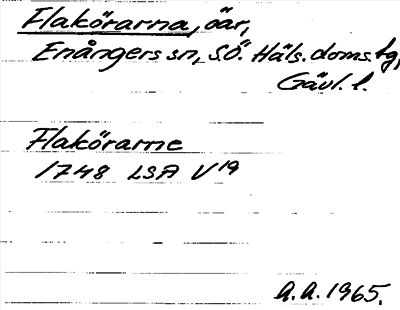 Flakörarna, öar,
Enångers sn, S.Ö. Häls. doms. tg,
Gävl. l.
Flakörarne
1748 LSA V19
A.A. 1965.